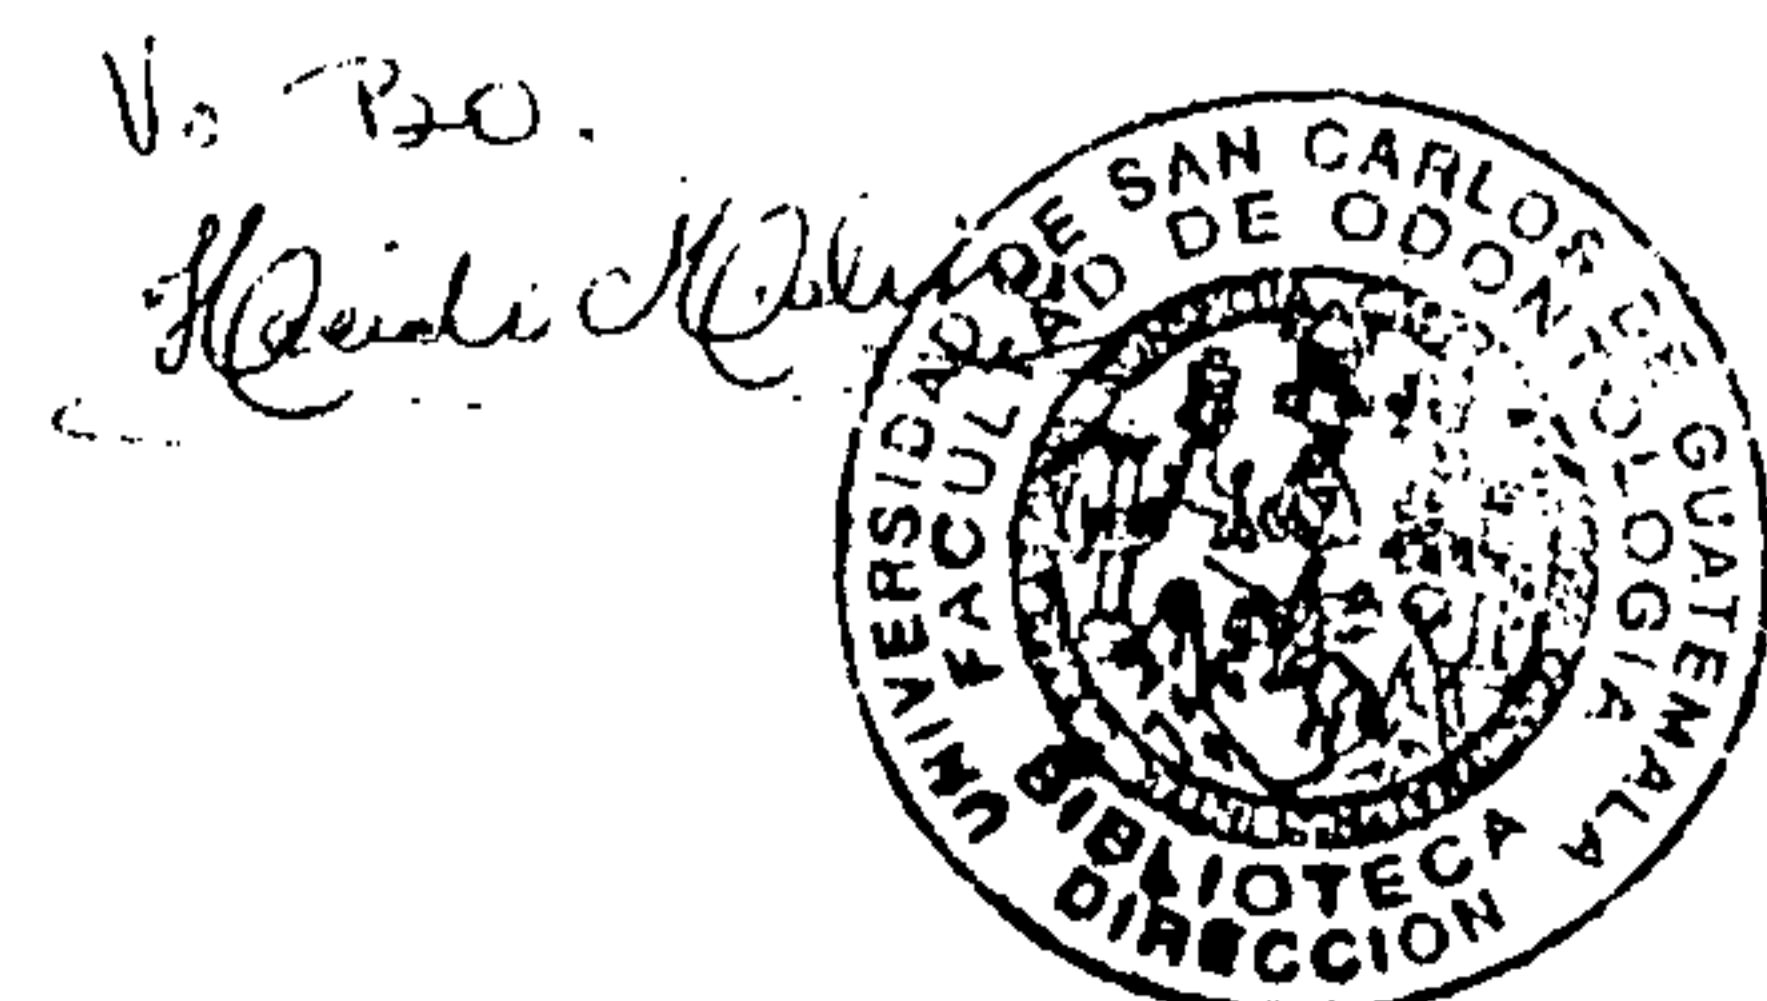 Vo. Bo.
Heidi
UNIVERSIDAD DE SAN CARLOS DE GUATEMALA
FACULTAD DE ODONTOLOGIA
BIBLIOTECA
DIRECCION